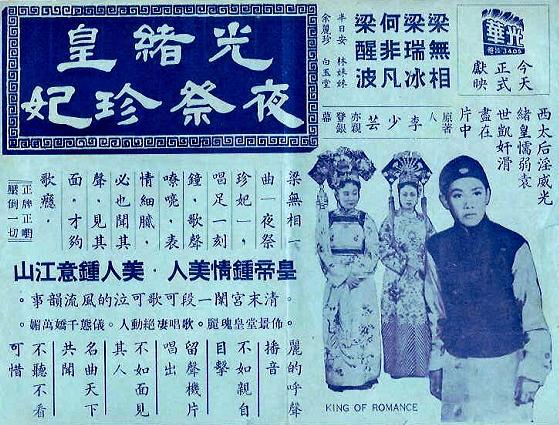 光華
今天
正式
獻映
梁無相
梁瑞冰
何非凡
梁醒波
半日安 林妹妹
余麗珍 白玉堂
原著人李少芸亦親登銀幕
光緒皇
夜祭珍妃
西太后淫威光
緒皇懦弱袁
世凱奸滑
盡在
片中
梁無相一
曲「夜祭
珍妃」，
唱足一刻
鐘，歌聲
嘹喨，表
情細膩，
必也聞其
聲，見其
面，才夠
歌癮
壓倒一切
皇帝鍾情美人．美人鍾意江山
清末宮闈一段可歌可泣的風流韻事。
佈景堂皇瑰麗。歌唱凄絕動人。儀態千嬌萬媚。
麗的呼聲播音
不如親自目擊
留聲機片唱出
不如面見其人
名曲天下共聞
不聽不看可惜
KING OF ROMANCE